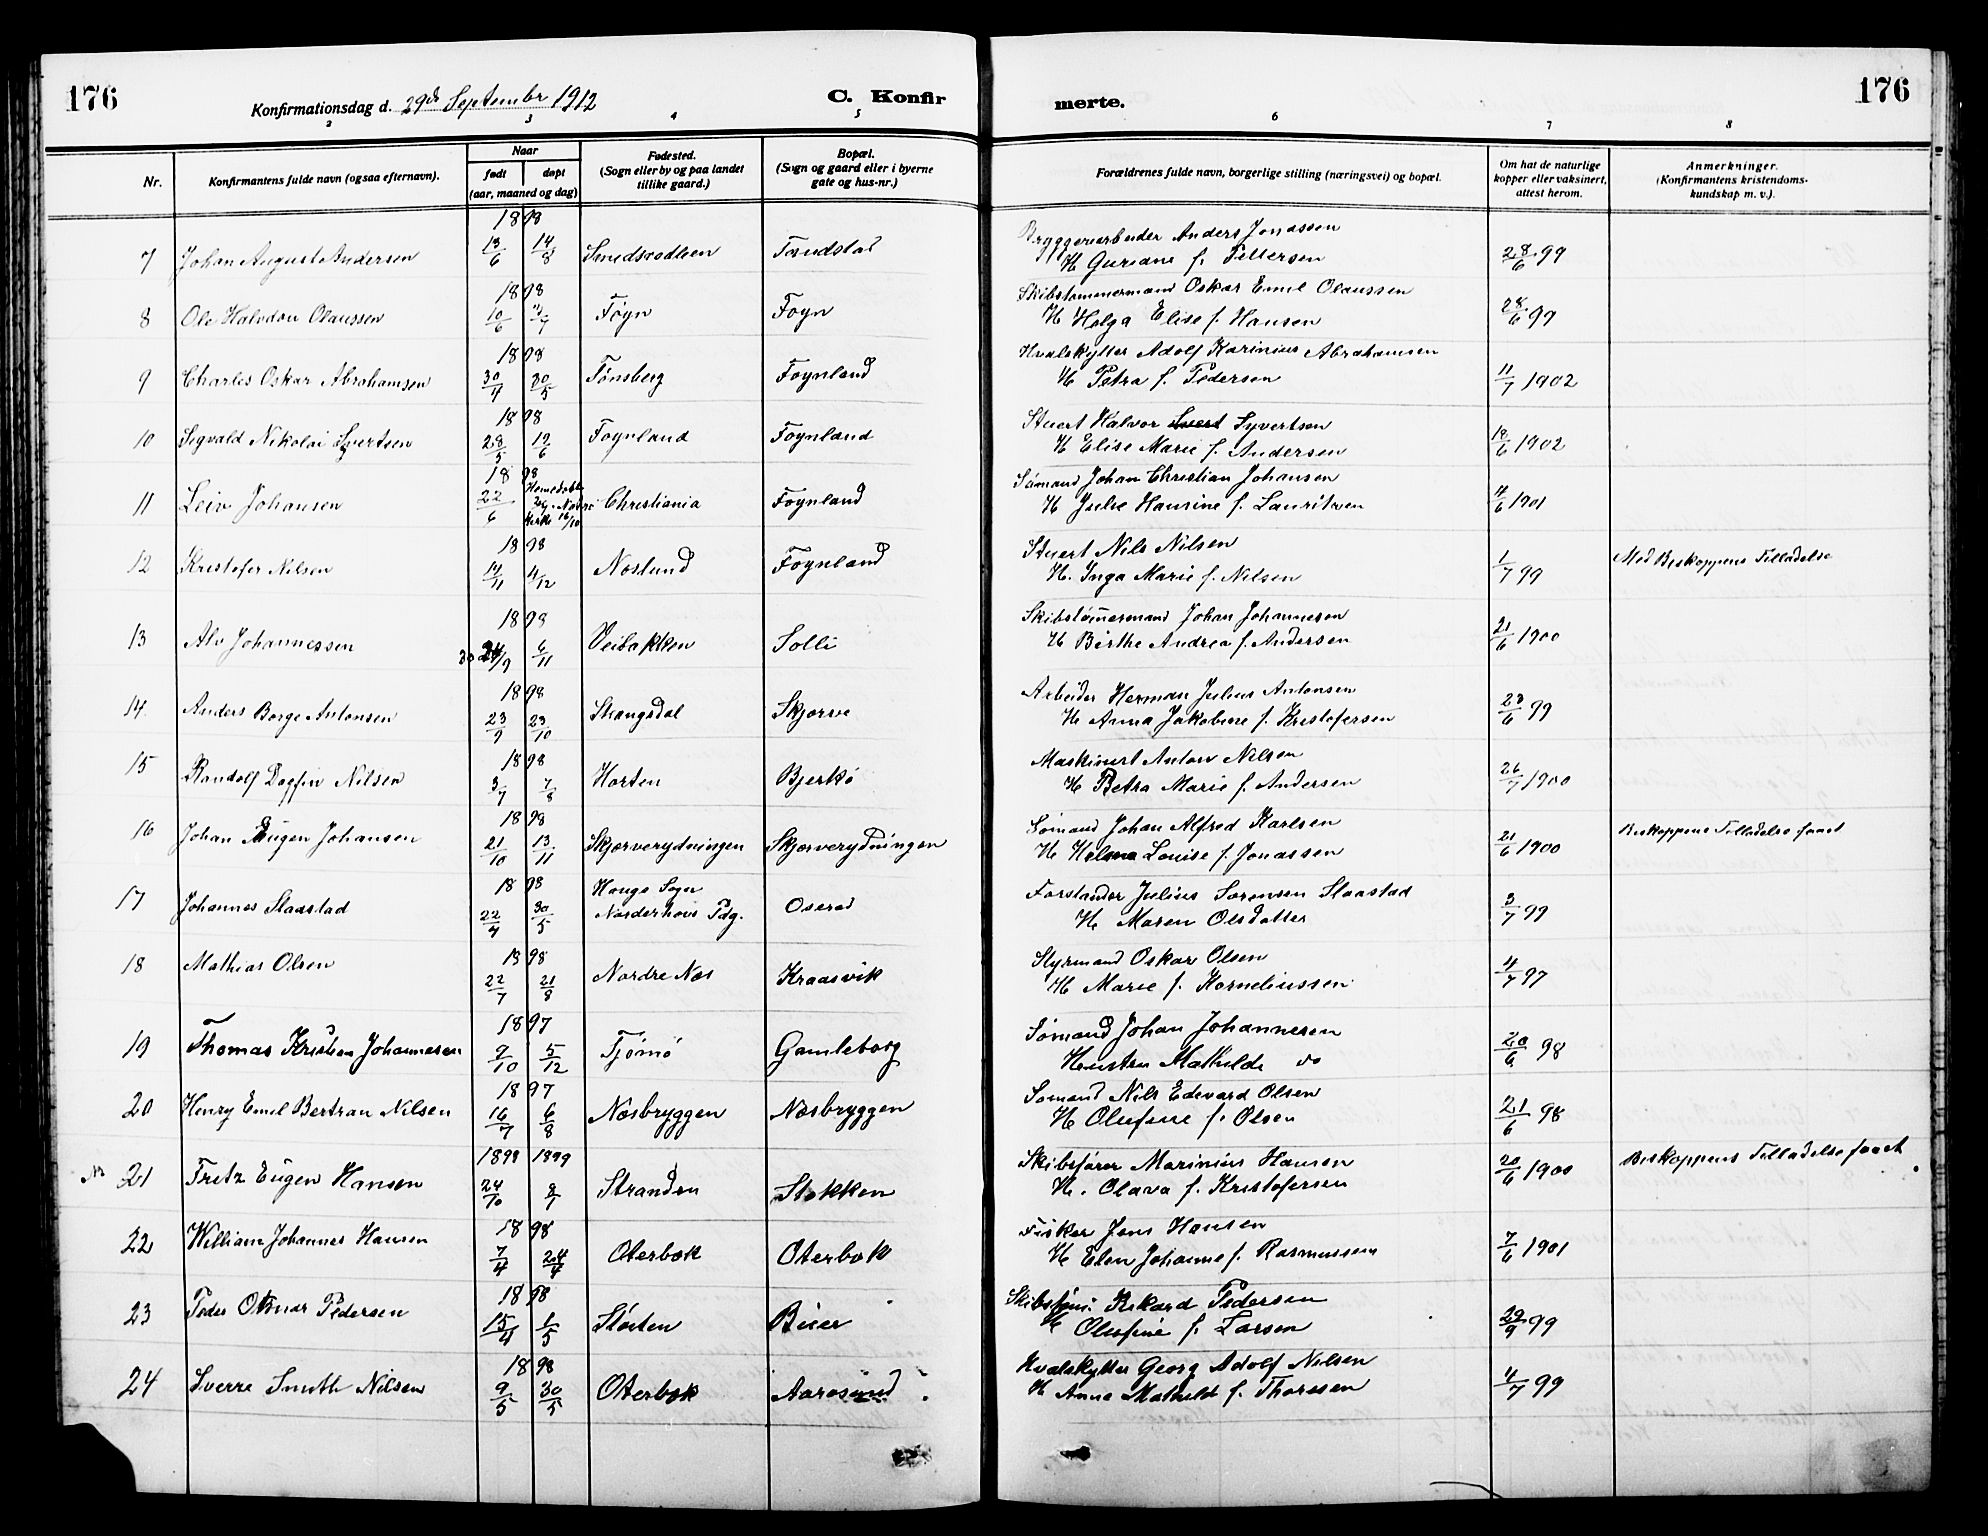 176
Konfirmationsdag d. 29de September 1912
C. Konfir
merte.
176
2 3 4 5 6 7 8
Nr.
Konfirmantens fulde navn (ogsaa efternavn).
Naar
født døpt
(aar, maaned og dag)
Fødested.
(Sogn eller by og paa landet
tillike gaard.)
Bopæl.
(Sogn og gaard eller i byerne
gate og hus-nr.)
Forældrenes fulde navn, borgerlige stilling (næringsvei) og bopæl.
Om hat de naturlige
kopper eller vaksinert,
attest herom.
Anmerkninger.
(Konfirmantens kristendoms-
kundskap m. v.).
1898
7 Johan August Andersen 13/6 14/8 Smedsrødteen
Bryggeriarbeider Anders Jonassen
H Guriane f. Pettersen 28/6 99
1898
8 Ole Halvdan Olaussen 10/6 Føyn Foyn
Skibstømmermand Oskar Emil Olaussen
H Helga Elise f. Hansen 28/6 99
1898
9 Charles Oskar Abrahamsen 30/4 30/5 Tønsberg Foynland
Hvalskytter Adolf Karinius Abrahamsen
H Petra f. Pedersen 11/7 1902
1898
10 Sigvald Nikolai Syvertsen 28/5 19/6 Foynland Foynland
Stuert Halvor Syvertsen
H Elise Marie f. Andersen 18/6 1902
1898
11 Leiv Johansen 22/6 Hjemedøbt Kirke 16/10 Christiania Foynland
Sømand Johan Christian Johansen
H Julie Hansine f. Lauritzen 11/6 1901
1898
12 Kristofer Nilsen 14/11 4/12 Nøslund Foynland
Stuert Nils Nilsen
H. Inga Marie f. Nilsen 1/7 99 Med Biskoppens Tilladelse
1898
13 Alv Johannessen 6/11 Veibakken Solli
Skibstømmermand Johan Johannesen
H Birthe Andrea f. Andersen 21/6 1900
1898
14. Anders Borge Antonsen 23/9 23/10 Skougsdal Skjærve
Arbeider Herman Julius Antonsen
H Anna Jakobine f. Kristofersen 28/6 99
1898
15 Randolf Dagfin Nilsen 3/7 7/8 Horten Bjerkø
Maskinist Anton Nilsen
H Petra Marie f. Andersen 26/7 1900
1898
16 Johan Eugen Johansen 21/10 13/11 Skjærverydningen Skjærverydningen
Sømand Johan Alfred Karlsen
H Helene Louise f. Jonassen 21/6 1900 Biskoppens Tilladelse faaet
1898
17 Johannes Slaastad 22/4 30/5 Hougs Sogn
Norderhovs Pdg. Oserød
Forstander Julius Sørensen Slaastad
H Maren Olsdatter 3/7 99
1898
18 Mathias Olsen 22/7 21/8 Nordre Næs Kraasvik
Styrmand Oskar Olsen
H Marie f. Korneliussen 4/7 97
1897
19 Thomas Kristian Johannesen 9/10 5/12 Tjømø Gamleborg
Sømand Johan Johannesen
Hustru Mathilde do 20/6 98
1897
20 Henry Emil Bertran Nilsen 16/7 6/8 Næsbryggen Næsbryggen
Sømand Nils Edevard Olsen
H Olufine f. Olsen 21/6 98
1898 1899
Nr 21 Fritz Eugen Hansen 24/10 8/1 Stranden Stokken
Skibsfører Marinius Hansen
H. Olava f. Kristofersen 20/6 1900 Biskoppens Tilladelse faaet
1898
22 William Johannes Hansen 7/4 24/4 Oterbæk Oterbæk
Fisker Jens Hansen
H Elen Johanne f. Rasmussen 7/6 1901
1898
23 Peder Otmar Pedersen 15/4 1/5 Støiten Buer
Rikard Pedersen
H Olufine f. Larsen 29/9 99
1898
24 Sverre Smith Nilsen 9/5 30/5 Oterbæk Aarøsund
Hvalskytter Georg Adolf Nilsen
H Anna Mathilde f. Thoresen 4/7 99